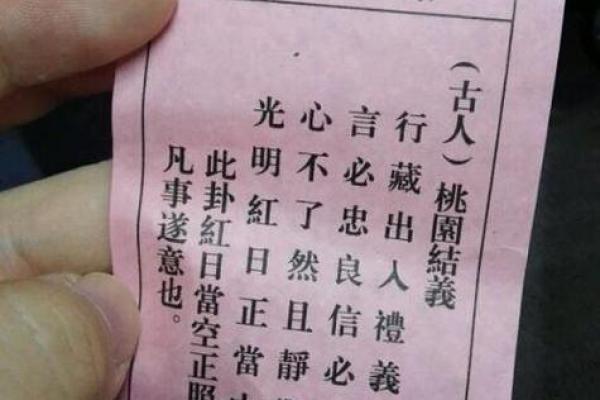 (古人)桃園結義
行藏出入禮義
言必忠良信必
心不了然且靜
光明紅日正當
此卦紅日當空正照
凡事遂意也。